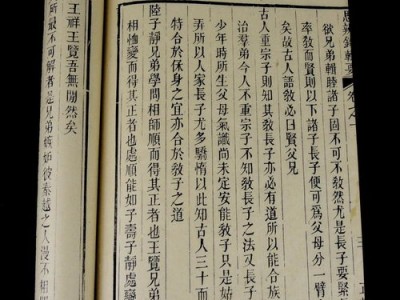 思辨錄輯要 卷之一
欲兄弟輯睦諸子固不可不教然尤是長子要緊
奉教而賢則以下諸子長子便可為父母分一臂
矣故古人語教必曰賢父兄
古人重宗子則知其教長子亦必有道所以能合族
洽羣弟今人不重宗子不知教長子之法又長子
少年時所生父母氣識尚未定安能教子只是
弄所以人家長子尤多驕惰以此知古人三十而
特合於保身之宜亦合於教子之道
陸子靜兄弟學問相師順而得其正者也王覽兄弟
相愧變而得其正者也處順能如子壽子靜處變
王祥王覽吾無間然矣
所最不可解者是兄弟嫉妒彼秦越之人漫不相